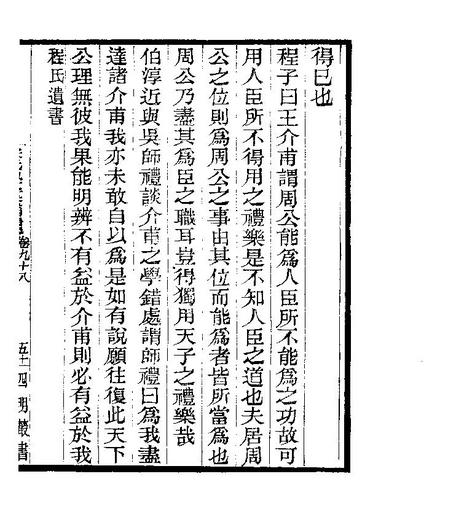 得已也
程子曰王介甫謂周公能爲人臣所不能爲之功故可
用人臣所不得用之禮樂是不知人臣之道也夫居周
公之位則爲周公之事由其位而能爲者皆所當爲也
周公乃盡其爲臣之職耳豈得獨用天子之禮樂哉
伯淳近與吳師禮談介甫之學錯處謂師禮曰爲我盡
達諸介甫我亦未敢自以爲是如有說願往復此天下
公理無彼我果能明辨不有益於介甫則必有益於我
程氏遺書
卷九十八
五十
四明叢書